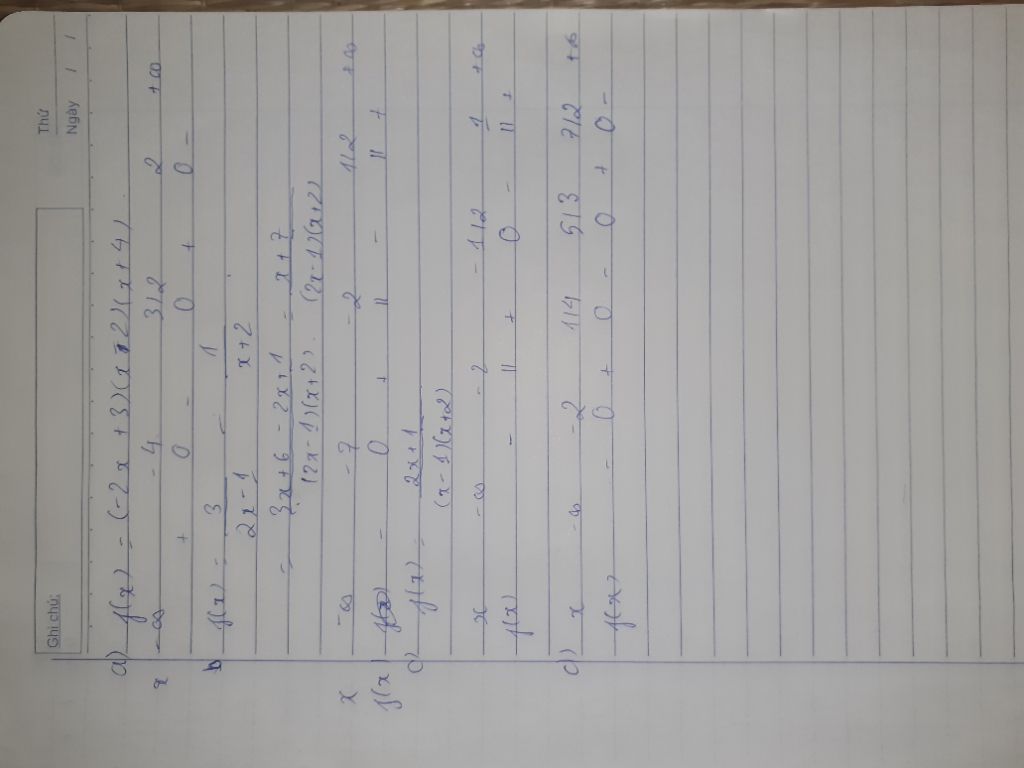 Ghi chú:
Thứ
Ngày / /
a) f(x) = (-2x + 3)(x - 2)(x + 4).
x -∞ -4 3/2 2 +∞
+ 0 - 0 + 0 -
b f(x) = 3 / 2x - 1 - 1 / x + 2
= 3x + 6 - 2x + 1 / (2x - 1)(x + 2) = x + 7 / (2x - 1)(x + 2)
x -∞ -7 -2 1/2 +∞
f(x) - 0 + || - || +
c) f(x) = 2x + 1 / (x - 1)(x + 2)
x -∞ -2 -1/2 1 +∞
f(x) - || + 0 - || +
d) x -∞ -2 1/4 5/3 7/2 +∞
f(x) - 0 + 0 - 0 + 0 -